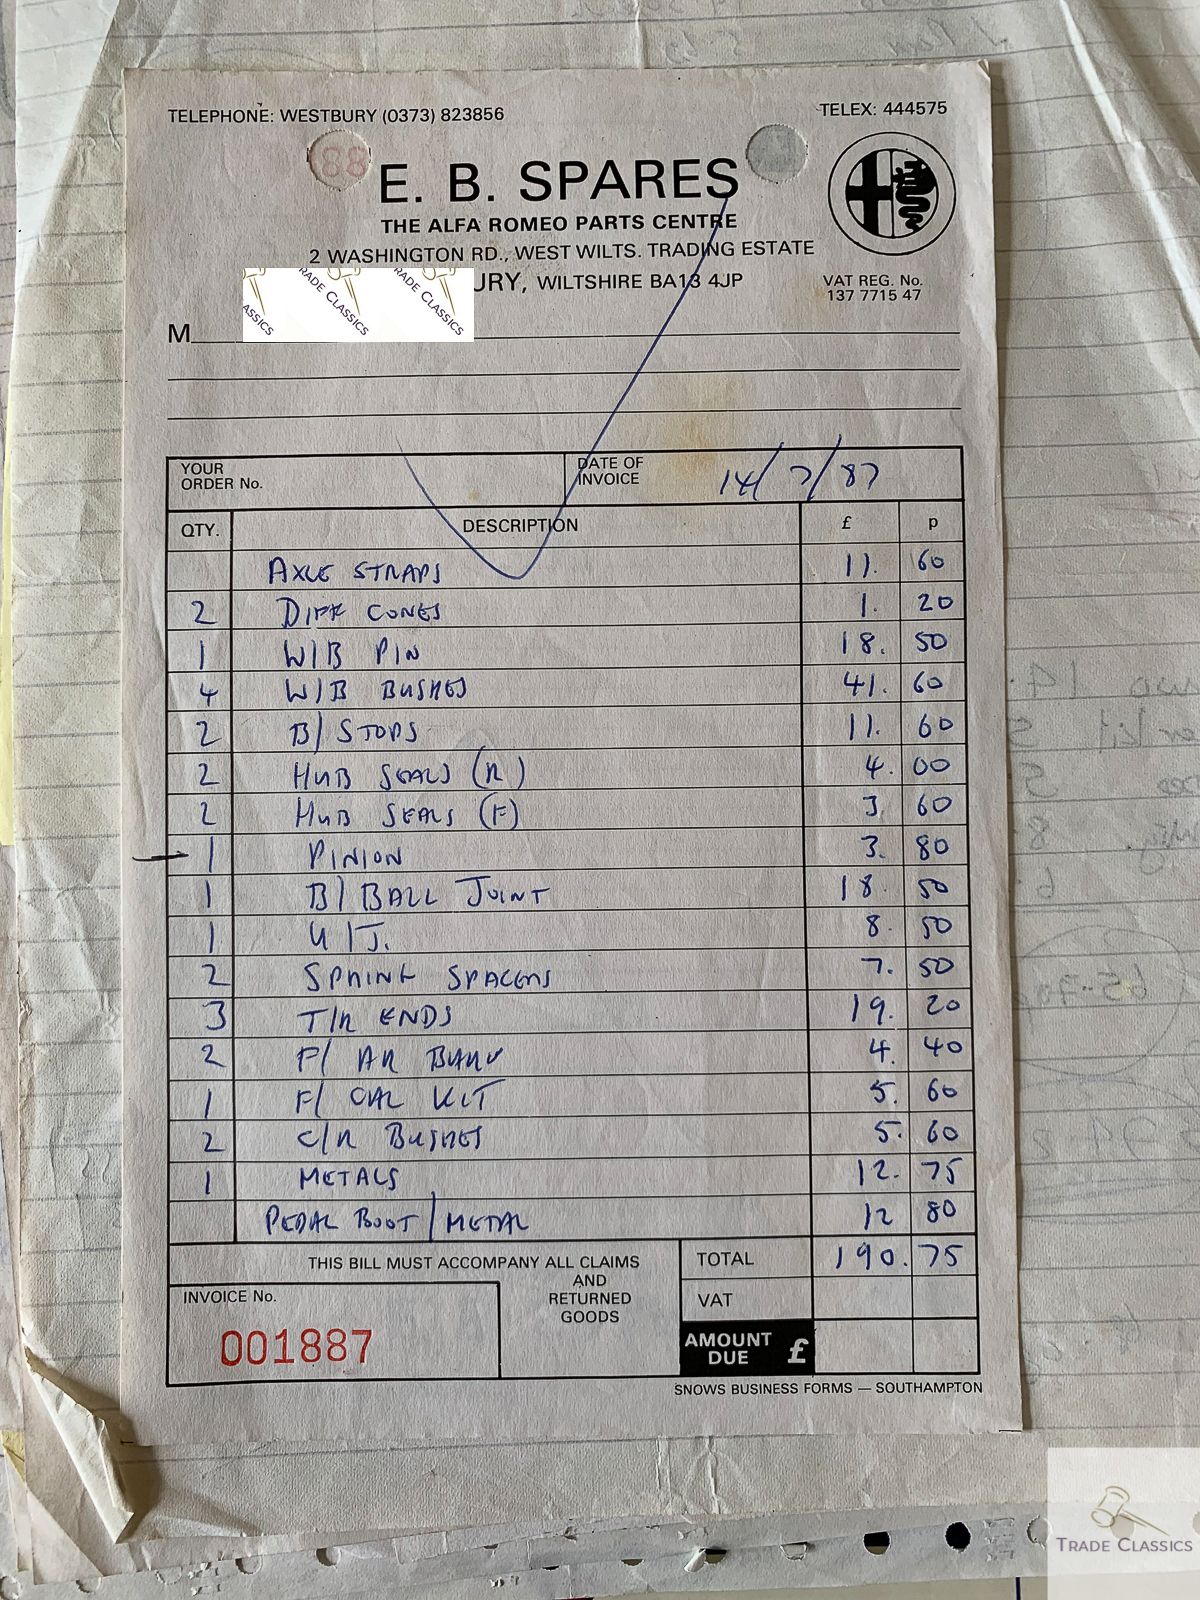 TELEPHONE: WESTBURY (0373) 823856 TELEX: 444575
E. B. SPARES
THE ALFA ROMEO PARTS CENTRE
2 WASHINGTON RD., WEST WILTS. TRADING ESTATE
URY, WILTSHIRE BA13 4JP
VAT REG. No.
137 7715 47
TRADE CLASSICS
M
YOUR
ORDER No.
DATE OF
INVOICE
14/7/87
QTY. DESCRIPTION £ p
AXLE STRAPS 11. 60
2 DIFF CONES 1. 20
1 W/B PIN 18. 50
4 W/B BUSHES 41. 60
2 B/STOPS 11. 60
2 HUB SEALS (R) 4. 00
2 HUB SEALS (F) 3. 60
1 PINION 3. 80
1 B/BALL JOINT 18. 50
1 U/J. 8. 50
2 SPRING SPACERS 7. 50
3 T/R ENDS 19. 20
2 F/ AR 4. 40
1 F/ CAL KIT 5. 60
2 C/R BUSHES 5. 60
1 METALS 12. 75
PEDAL BOOT/METAL 12 80
THIS BILL MUST ACCOMPANY ALL CLAIMS
AND
RETURNED
GOODS
TOTAL 190. 75
VAT
AMOUNT
DUE £
INVOICE No.
001887
SNOWS BUSINESS FORMS — SOUTHAMPTON
TRADE CLASSICS